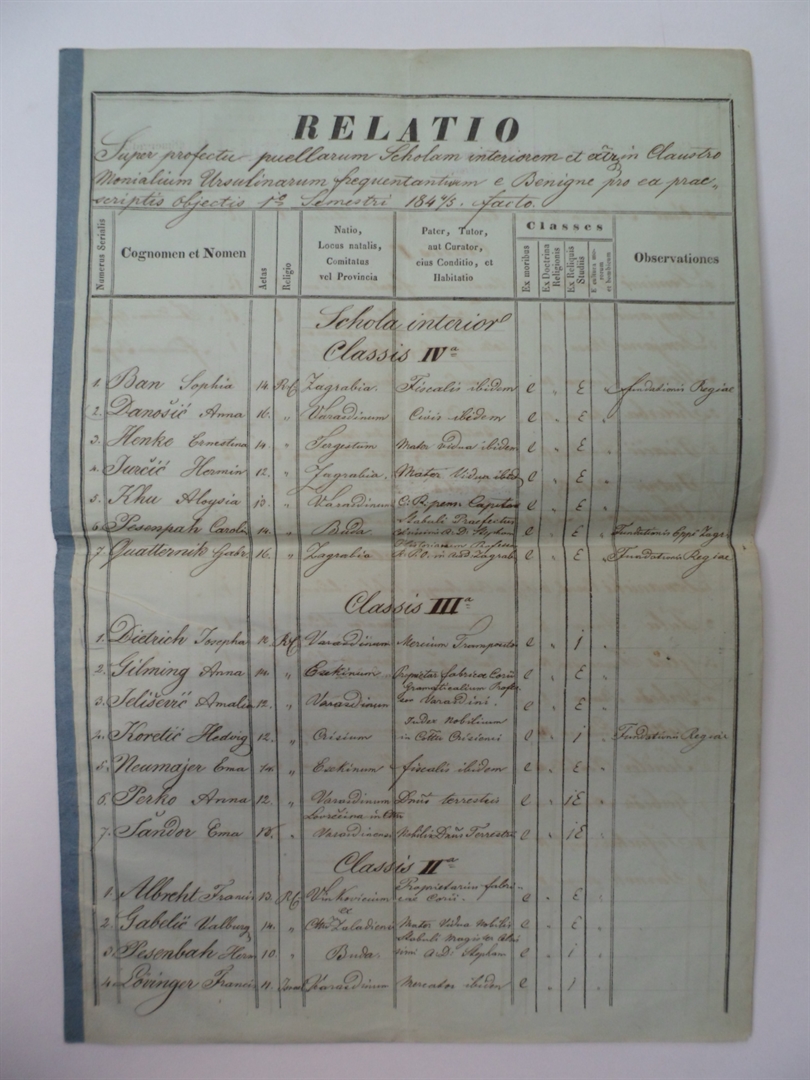 RELATIO
Super profectu puellarum Scholam interiorem et in Claustro
Monialium Ursulinarum frequentantium e Benigne pro ea prae„
scriptis objectis 1º Semestri 184⅘. facto.
Numerus Serialis Cognomen et Nomen Aetas Religio Natio, Locus natalis, Comitatus vel Provincia Pater, Tutor, aut Curator, eius Conditio, et Habitatio Classes Ex moribus Ex Doctrina Religionis Ex Reliquis Studiis Observationes
Schola interior
Classis IVª
1. Ban Sophia 14. R.C. Zagrabia. Fiscalis ibidem e „ E „ fundationis Regiae
2. Danošić Anna 16. „ Varasdinum Civis ibidem e „ E „
3. Henke Ernestina 14. „ Tergestum Mater vidua ibidem e „ E „
4. Jurčić Hermin 12. „ Zagrabia. Mater Vidua ibid e „ E „
5. Khu Aloysia 13. „ Varasdinum C. R. pens. Capitan e „ E „
6. Pesenpah Carolin 14. „ Buda Stabuli Praefectus A. D. Stephan e „ E „ Fundationis Oppi Zagr
7. Quatternik Gabr. 16. „ Zagrabia Historiarum Professor in Acad Zagrab e „ E „ Fundationis Regiae
Classis IIIª
1. Dietrich Josepha 12. R.C. Varasdinum Mercium Transpositor e „ 1 „
2. Gilming Anna 14. „ Esekinum Propietar fabricae Corii e „ E „
3. Jelišević Amalia 12. „ Varasdinum Gramaticalium Profes sor Varasdini. e „ E „
4. Koretić Hedvig 12. „ Crisium Judex Nobilium in Cottu Crisiensi e „ 1 „ Fundationis Regiae
5. Neumajer Ema 14. „ Esekinum fiscalis ibidem e „ E „
6. Perko Anna 12. „ Varasdinum Dnus terrestris e „ 1E „
7. Šandor Ema 13. „ Lovrečina in Cottu Varasdinensi Nobilis Dnus Terrestris e „ 1E „
Classis IIª
1. Albreht Francis 13. R.C. Vinkovicium Proprietarius fabri cae Corii. e „ E „
2. Gabelić Valburg 14. „ Cottu Zaladiensi Mater Vidua Nobilis e „ E „
3. Pesenbah Herm 10. „ Buda. Stabuli Magister A. D. Stephan e „ 1 „
4. Lövinger Francis 11. Varasdinum Mercator ibidem e „ 1 „